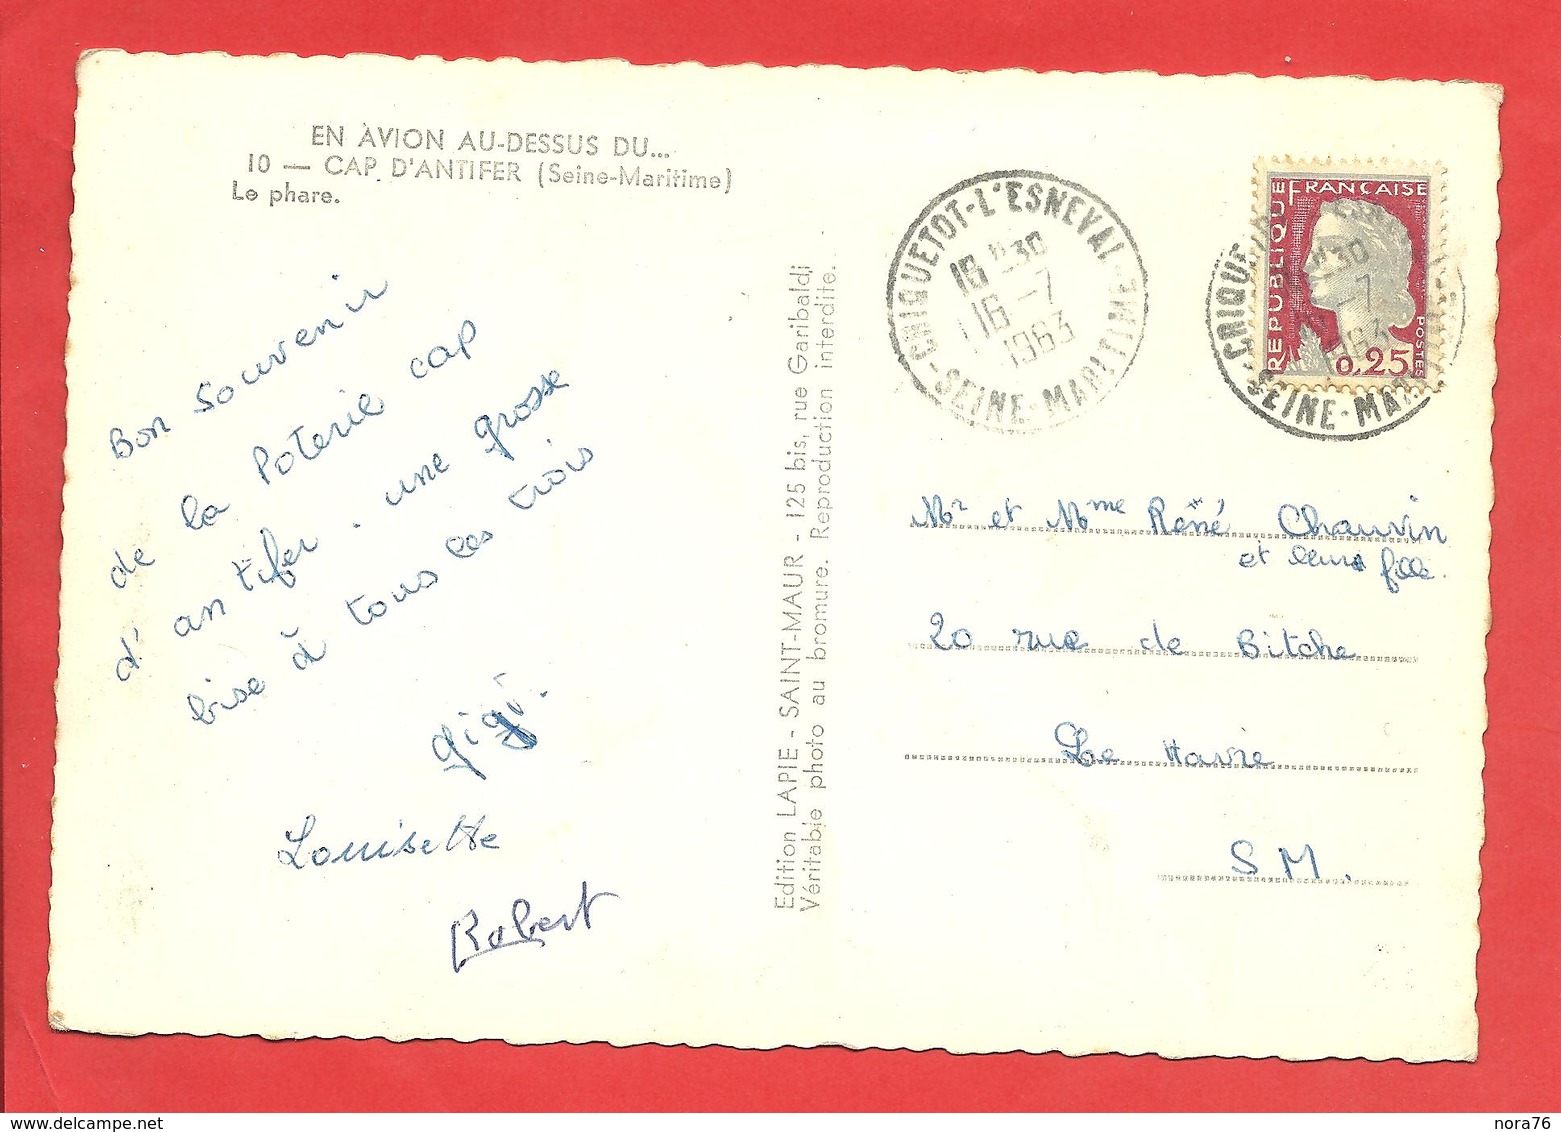 EN AVION AU-DESSUS DU...
10 — CAP D'ANTIFER (Seine-Maritime)
Le phare.
Bon souvenir
de la Poterie cap
d'antifer. une grosse
bise à tous les trois
gigi.
Louisette
Robert
Edition LAPIE - SAINT-MAUR - 125 bis, rue Garibaldi
Véritable photo au bromure. Reproduction interdite.
CRIQUETOT-L'ESNEVAL
16 H30
16 -7
1963
SEINE-MARITIME
REPUBLIQUE FRANCAISE
POSTES
0,25
Mr et Mme Réné Chauvin
et leurs fille.
20 rue de Bitche
Le Havre
S M.
nora76